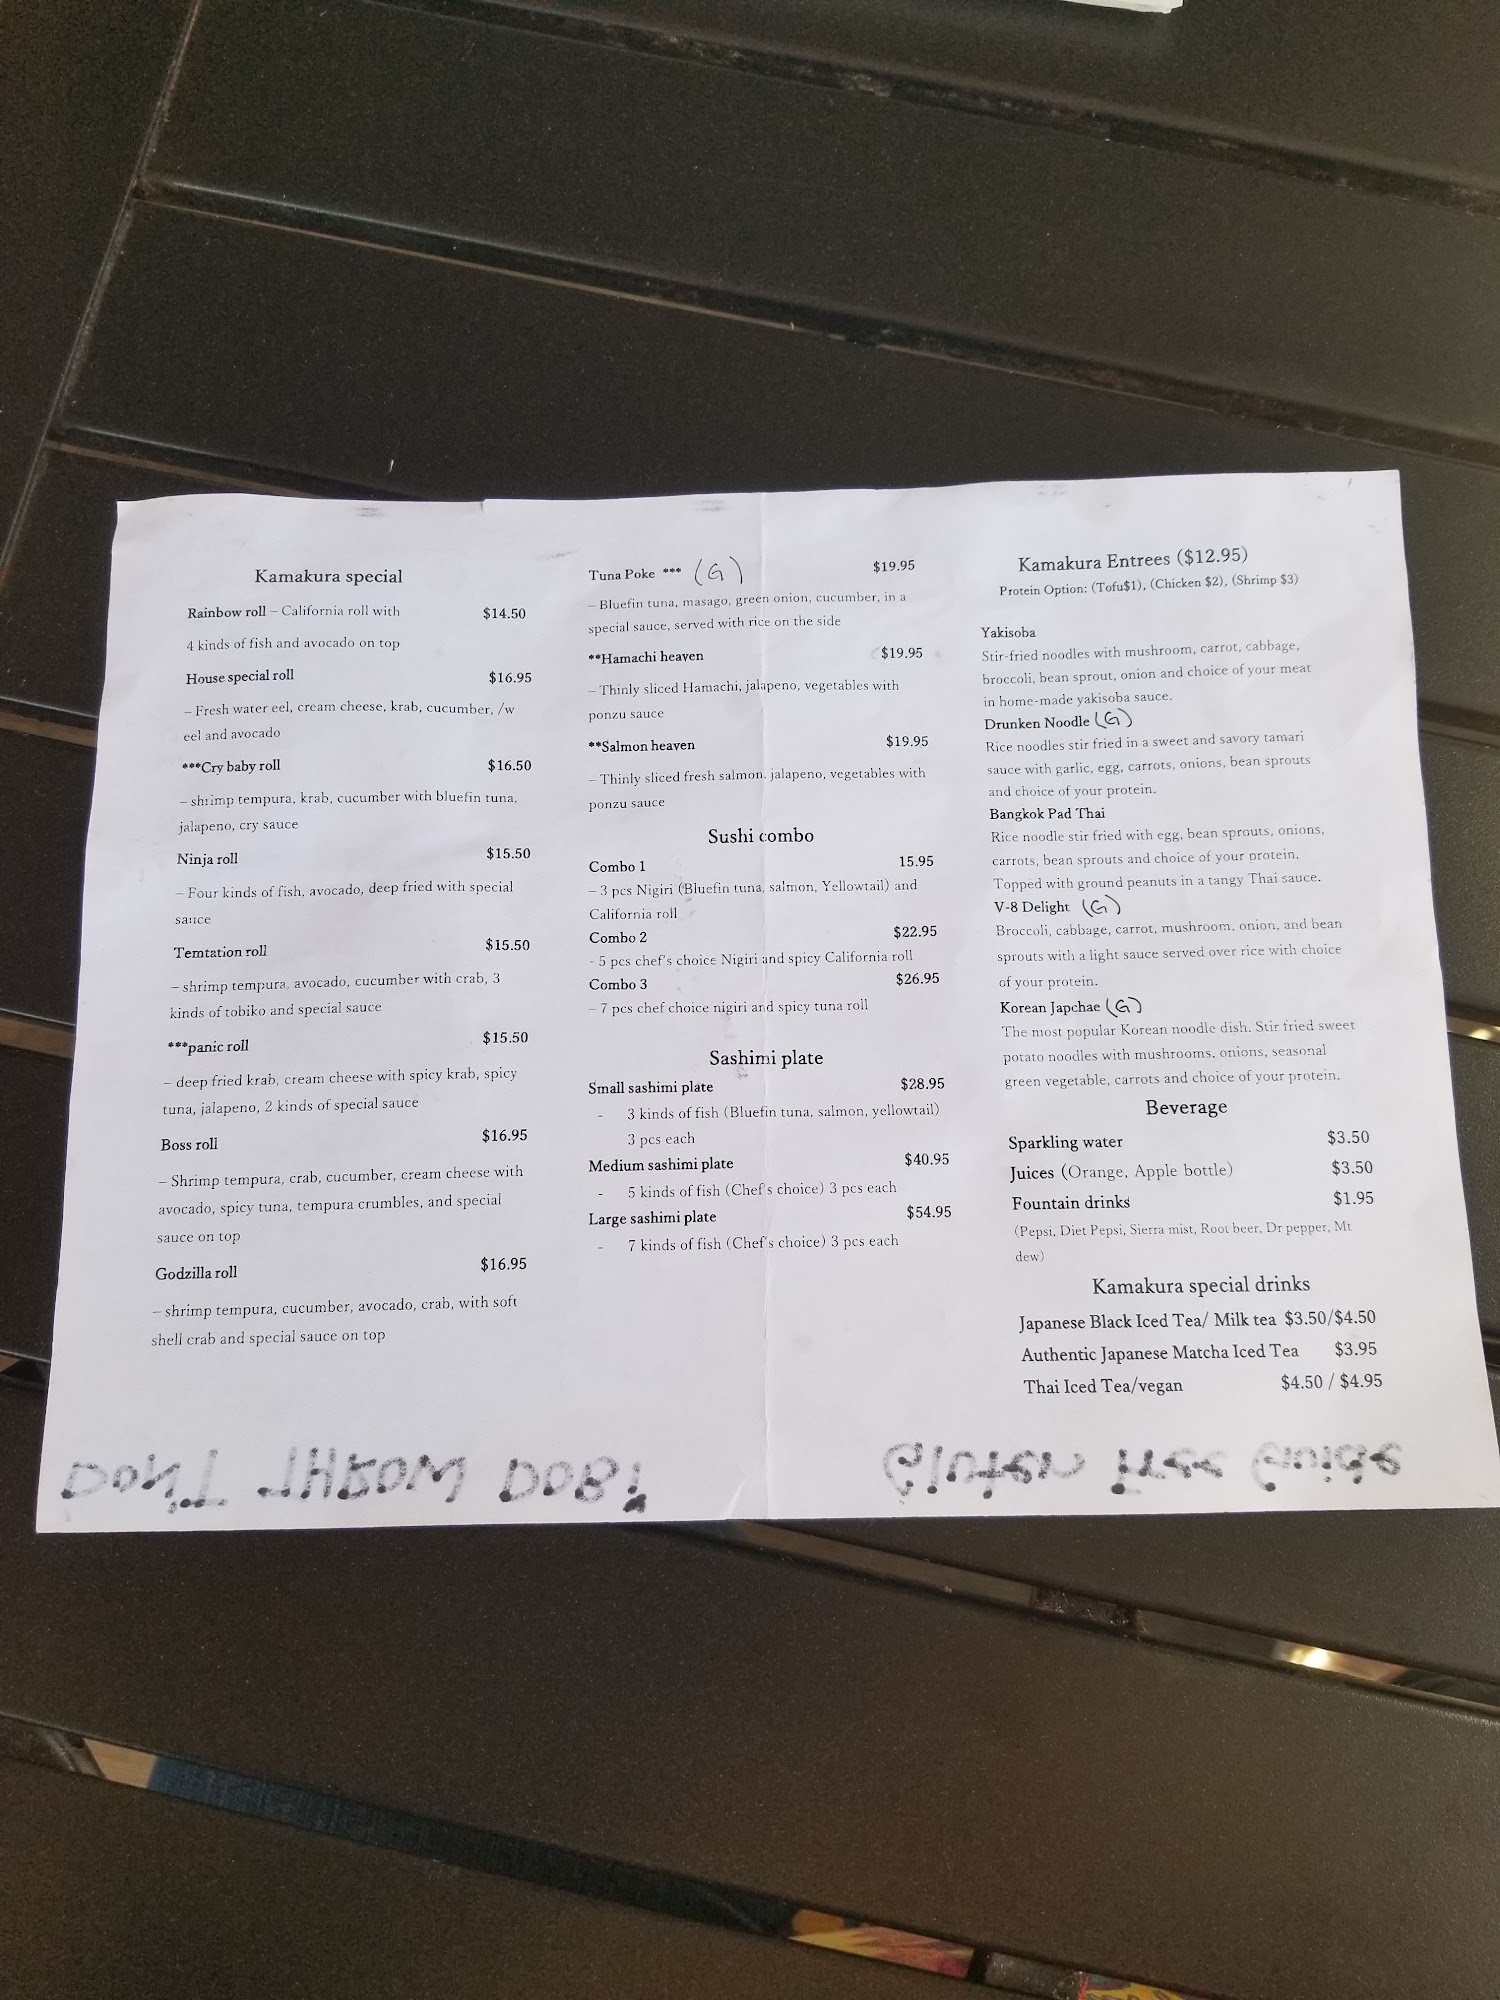 Kamakura special
Rainbow roll – California roll with $14.50
4 kinds of fish and avocado on top
House special roll $16.95
– Fresh water eel, cream cheese, krab, cucumber, /w
eel and avocado
***Cry baby roll $16.50
– shrimp tempura, krab, cucumber with bluefin tuna,
jalapeno, cry sauce
Ninja roll $15.50
– Four kinds of fish, avocado, deep fried with special
sauce
Temtation roll $15.50
– shrimp tempura, avocado, cucumber with crab, 3
kinds of tobiko and special sauce
***panic roll $15.50
– deep fried krab, cream cheese with spicy krab, spicy
tuna, jalapeno, 2 kinds of special sauce
Boss roll $16.95
– Shrimp tempura, crab, cucumber, cream cheese with
avocado, spicy tuna, tempura crumbles, and special
sauce on top
Godzilla roll $16.95
– shrimp tempura, cucumber, avocado, crab, with soft
shell crab and special sauce on top
Tuna Poke *** (G) $19.95
– Bluefin tuna, masago, green onion, cucumber, in a
special sauce, served with rice on the side
**Hamachi heaven $19.95
– Thinly sliced Hamachi, jalapeno, vegetables with
ponzu sauce
**Salmon heaven $19.95
– Thinly sliced fresh salmon, jalapeno, vegetables with
ponzu sauce
Sushi combo
Combo 1 15.95
– 3 pcs Nigiri (Bluefin tuna, salmon, Yellowtail) and
California roll
Combo 2 $22.95
- 5 pcs chef's choice Nigiri and spicy California roll
Combo 3 $26.95
– 7 pcs chef choice nigiri and spicy tuna roll
Sashimi plate
Small sashimi plate $28.95
- 3 kinds of fish (Bluefin tuna, salmon, yellowtail)
3 pcs each
Medium sashimi plate $40.95
- 5 kinds of fish (Chef's choice) 3 pcs each
Large sashimi plate $54.95
- 7 kinds of fish (Chef's choice) 3 pcs each
Kamakura Entrees ($12.95)
Protein Option: (Tofu$1), (Chicken $2), (Shrimp $3)
Yakisoba
Stir-fried noodles with mushroom, carrot, cabbage,
broccoli, bean sprout, onion and choice of your meat
in home-made yakisoba sauce.
Drunken Noodle (G)
Rice noodles stir fried in a sweet and savory tamari
sauce with garlic, egg, carrots, onions, bean sprouts
and choice of your protein.
Bangkok Pad Thai
Rice noodle stir fried with egg, bean sprouts, onions,
carrots, bean sprouts and choice of your protein,
Topped with ground peanuts in a tangy Thai sauce.
V-8 Delight (G)
Broccoli, cabbage, carrot, mushroom, onion, and bean
sprouts with a light sauce served over rice with choice
of your protein.
Korean Japchae (G)
The most popular Korean noodle dish. Stir fried sweet
potato noodles with mushrooms, onions, seasonal
green vegetable, carrots and choice of your protein.
Beverage
Sparkling water $3.50
Juices (Orange, Apple bottle) $3.50
Fountain drinks $1.95
(Pepsi, Diet Pepsi, Sierra mist, Root beer, Dr pepper, Mt
dew)
Kamakura special drinks
Japanese Black Iced Tea/ Milk tea $3.50/$4.50
Authentic Japanese Matcha Iced Tea $3.95
Thai Iced Tea/vegan $4.50 / $4.95
DON'T THROW
Gluten Free Guide